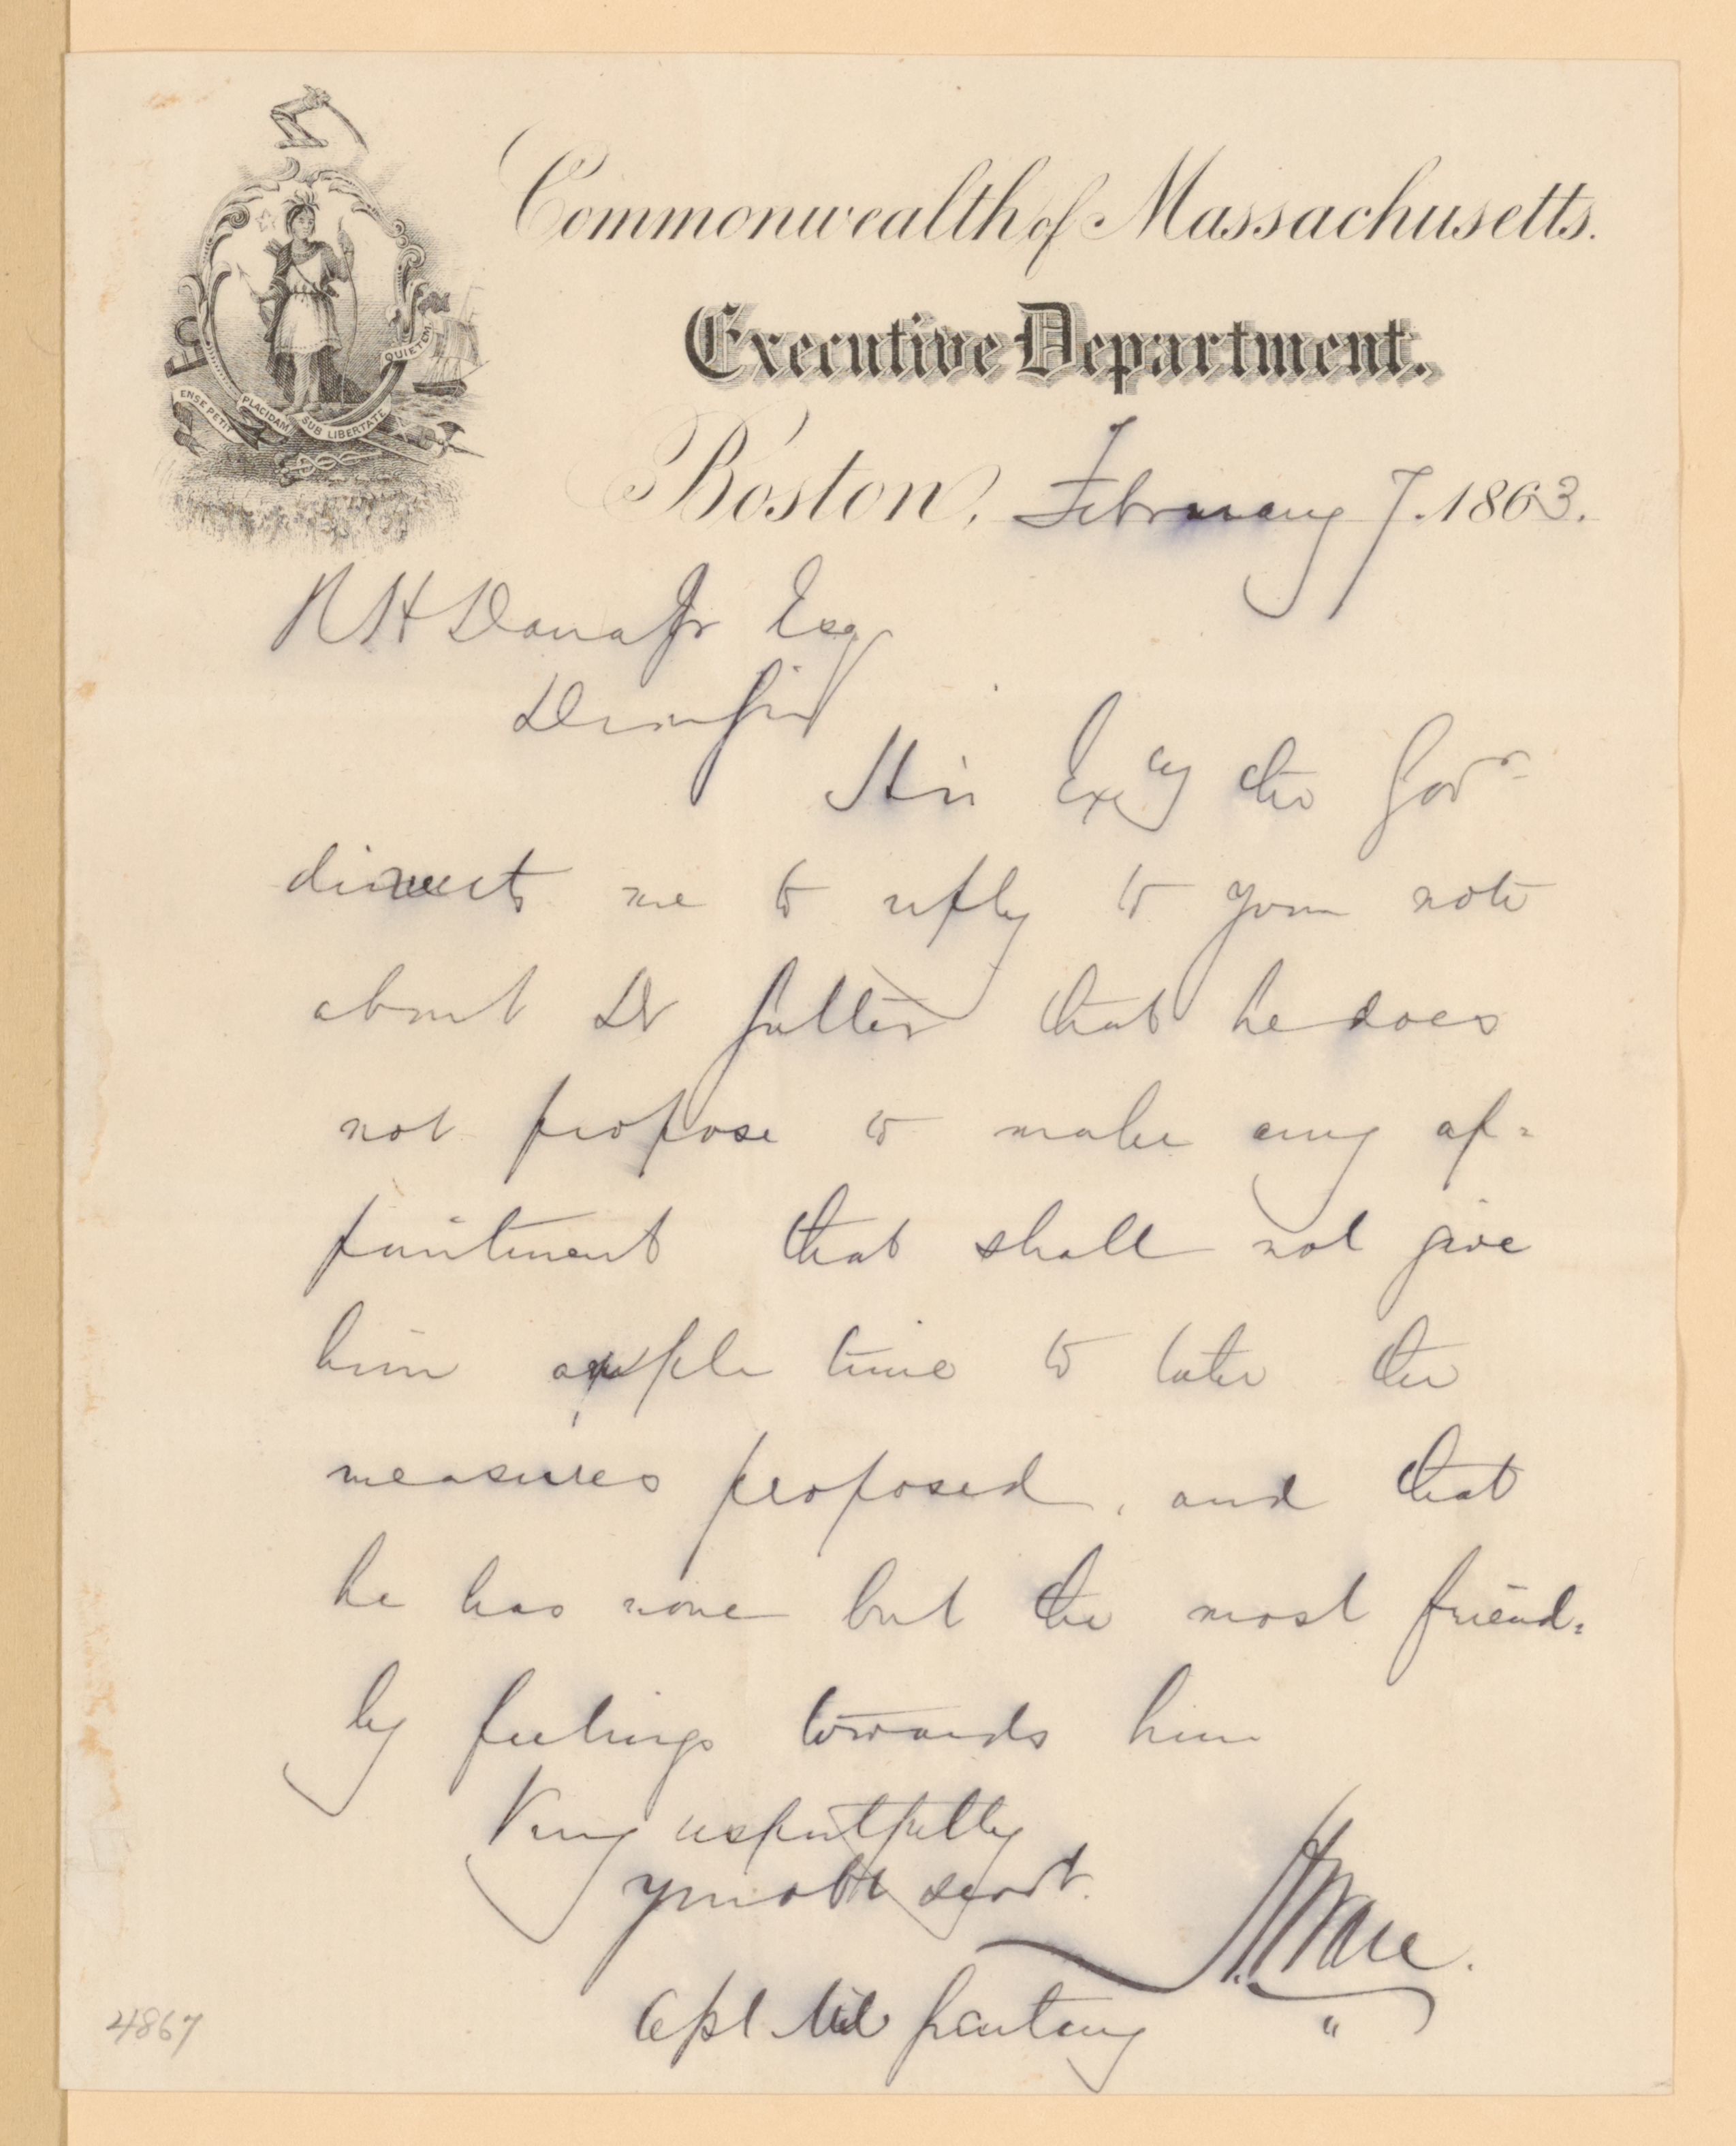 ENSE PETIT PLACIDAM SUB LIBERTATE QUIETEM
Commonwealth of Massachusetts.
Executive Department.
Boston, February 7. 1863.
R H Dana Jr Esq
Dear Sir
His Excy the Govr
directs me to reply to your note
about Dr that he does
not propose to make any ap=
pointment that shall not give
him ample time to take the
measures proposed, and that
he has none but the most friend=
ly feelings towards him
Very respectfully
yr obt servt.
H Ware.
Asst Mil Secretary
4867